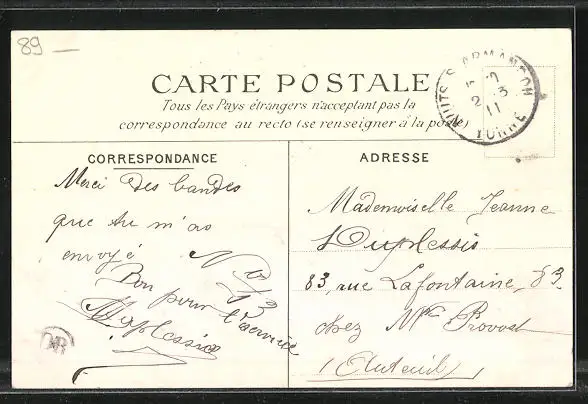 89 —
CARTE POSTALE
Tous les Pays étrangers n'acceptant pas la
correspondance au recto (se renseigner à la poste)
NUITS S. ARMANÇON
2 - 3
11
YONNE
CORRESPONDANCE
Merci des bandes
que tu m'as
envoyé
No 13
Bon pour
l'service
Duplessis
ADRESSE
Mademoiselle Jeanne
Duplessis
83, rue Lafontaine, 83
chez Mme Provost
(Auteuil)